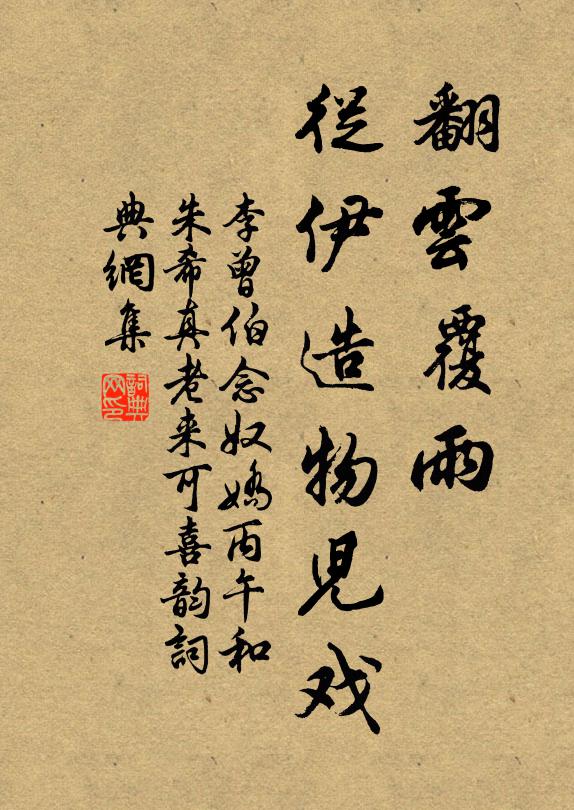 翻雲覆雨
從伊造物児戏
李曾伯念奴嬌丙午和
朱希真老来可喜韵詞
典網集
詞典
网印